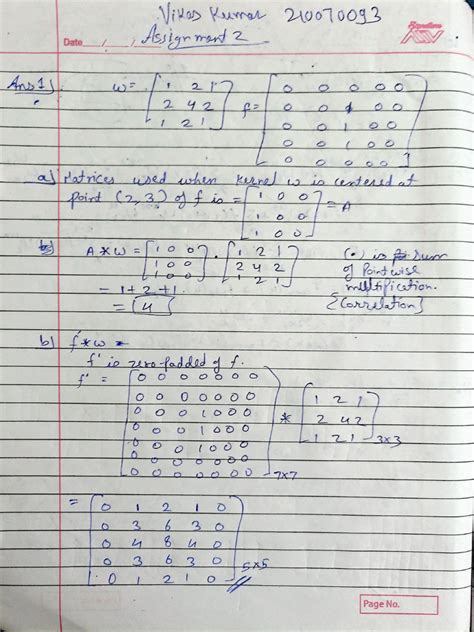 Vikas Kumar 210070093
Date / / Assignment 2
Ans 1) w = [1 2 1 f = [0 0 0 0 0
2 4 2 0 0 1 0 0
1 2 1] 0 0 1 0 0
0 0 1 0 0
0 0 0 0 0]
a) Matrices used when kernel w is centered at
point (2,3) of f is = [1 0 0
1 0 0 = A
1 0 0]
A * w = [1 0 0 . [1 2 1 (•) is sum
1 0 0 2 4 2 of Pointwise
1 0 0] 1 2 1] multification.
= 1+2+1 {Correlation}
= 4
b) f * w =
f' is zero padded of f.
f' = [0 0 0 0 0 0 0
0 0 0 0 0 0 0 [1 2 1
0 0 0 1 0 0 0 * 2 4 2
0 0 0 1 0 0 0 1 2 1] 3x3
0 0 0 1 0 0 0
0 0 0 0 0 0 0
0 0 0 0 0 0 0] 7x7
= [0 1 2 1 0
0 3 6 3 0
0 4 8 4 0
0 3 6 3 0
0 1 2 1 0] 5x5
Page No.